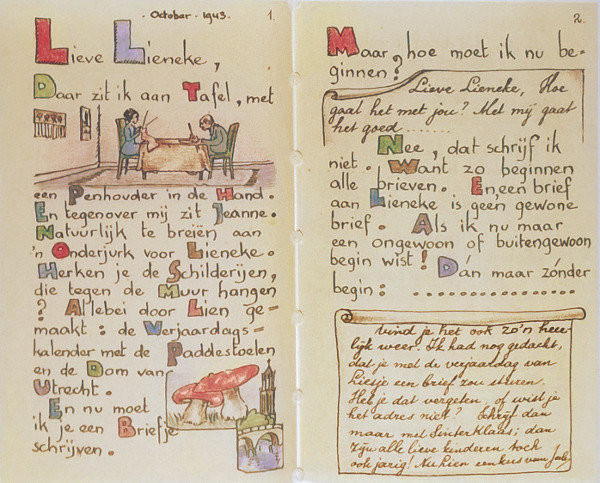 Octobar - 1943.
1.
Lieve Lieneke,
Daar zit ik aan Tafel, met
een Penhouder in de Hand.
En tegenover mij zit Jeanne.
Natuurlijk te breiën aan
'n Onderjurk voor Lieneke.
Herken je de Schilderijen,
die tegen de Muur hangen
? Allebei door Lien ge-
maakt: de Verjaardags=
kalender met de Paddestoelen
en de Dom van
Utrecht.
En nu moet
ik je een Briefje
schrijven.
2.
Maar, hoe moet ik nu be-
ginnen?
Lieve Lieneke, Hoe
gaat het met jou? Met mij gaat
het goed........
Nee, dat schrijf ik
niet. Want zo beginnen
alle brieven. En een brief
aan Lieneke is geen gewone
brief. Als ik nu maar
een ongewoon of buitengewoon
begin wist! Dán maar zónder
begin: ..................
Vind je het ook zo'n heer-
lijk weer. Ik had nog gedacht,
dat je met de verjaardag van
Liesje een brief zou sturen.
Heb je dat vergeten, of wist je
het adres niet? Schrijf dan
maar met Sinterklaas; dan
zijn alle lieve kinderen toch
ook jarig! Nu hien een kus van